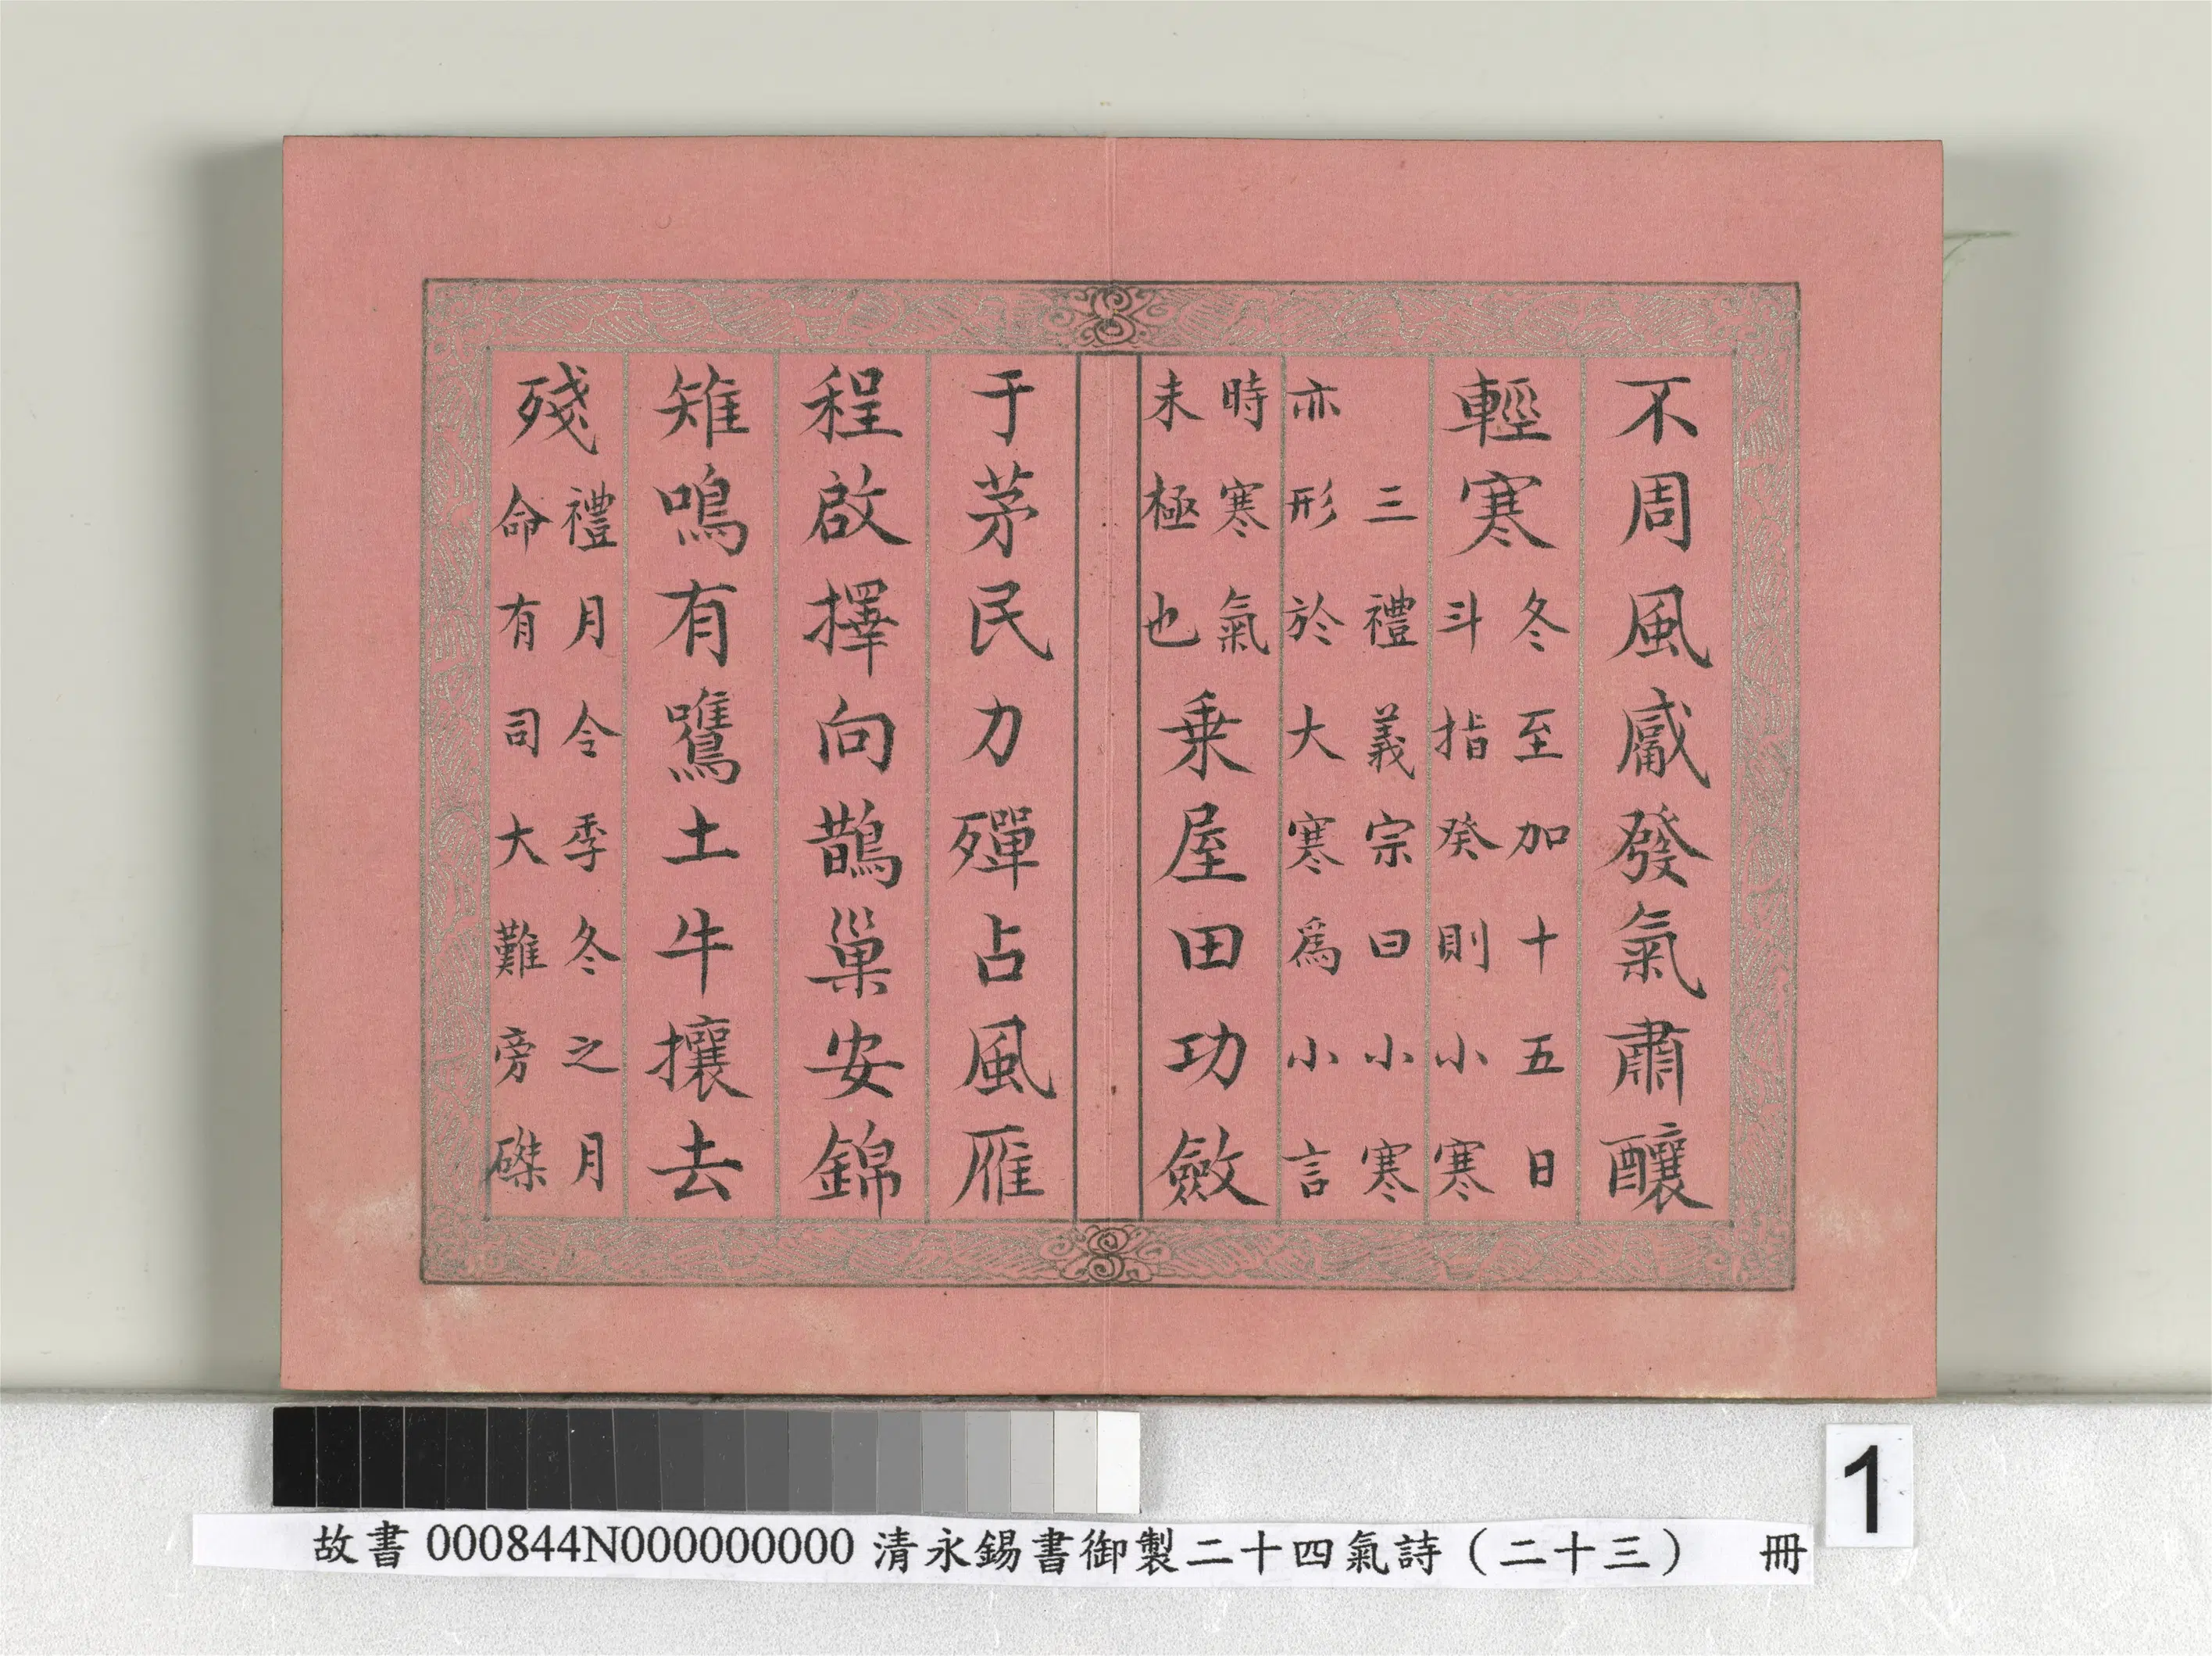 不周風觱發氣肅釀
輕寒
冬至加十五日
斗指癸則小寒
三禮義宗曰小寒
亦形於大寒爲小言
時寒氣
未極也
乗屋田功斂
于茅民力殫占風雁
程啟擇向鵲巢安錦
雉鳴有鷕土牛攘去
殘
禮月令季冬之月
命有司大難旁磔
1
故書 000844N000000000 清永錫書御製二十四氣詩（二十三） 冊